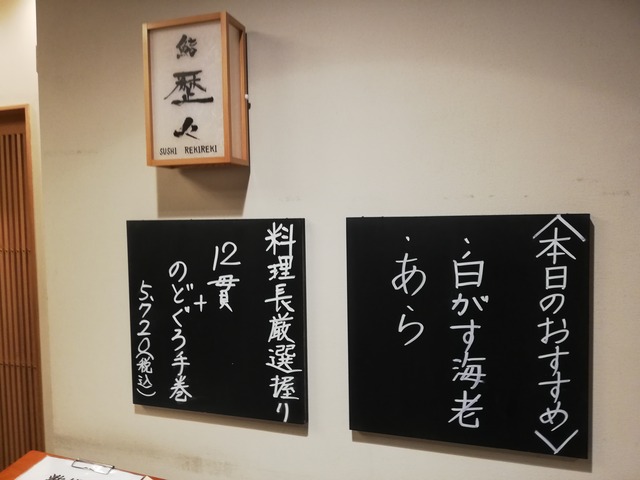 鮨
歴々
SUSHI REKIREKI
料理長厳選握り
12貫
+
のどぐろ手巻
5,720(税込)
〈本日のおすすめ〉
・白がす海老
・あら